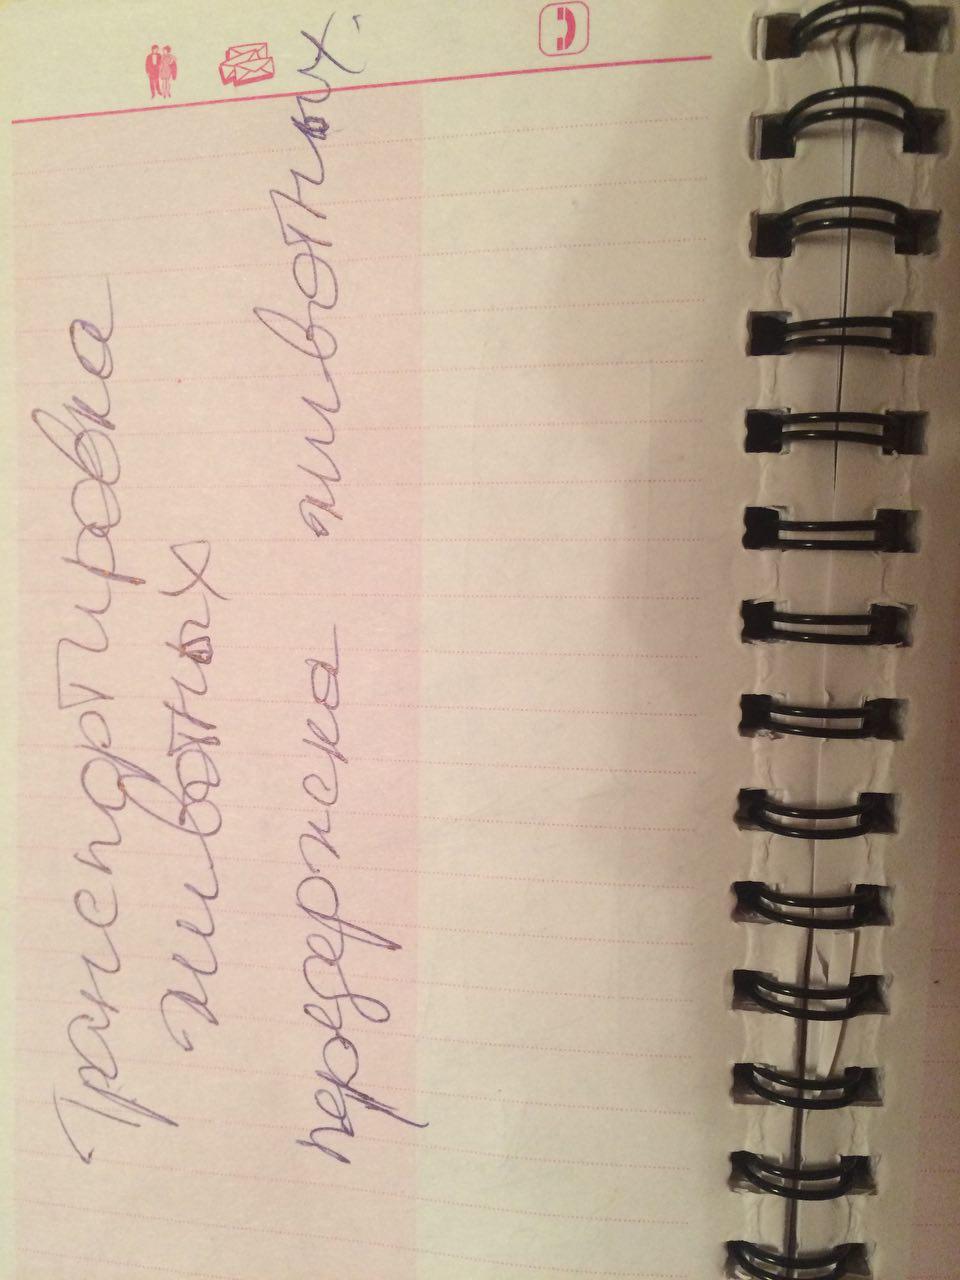 Транспортировка
животных
передержка животных.